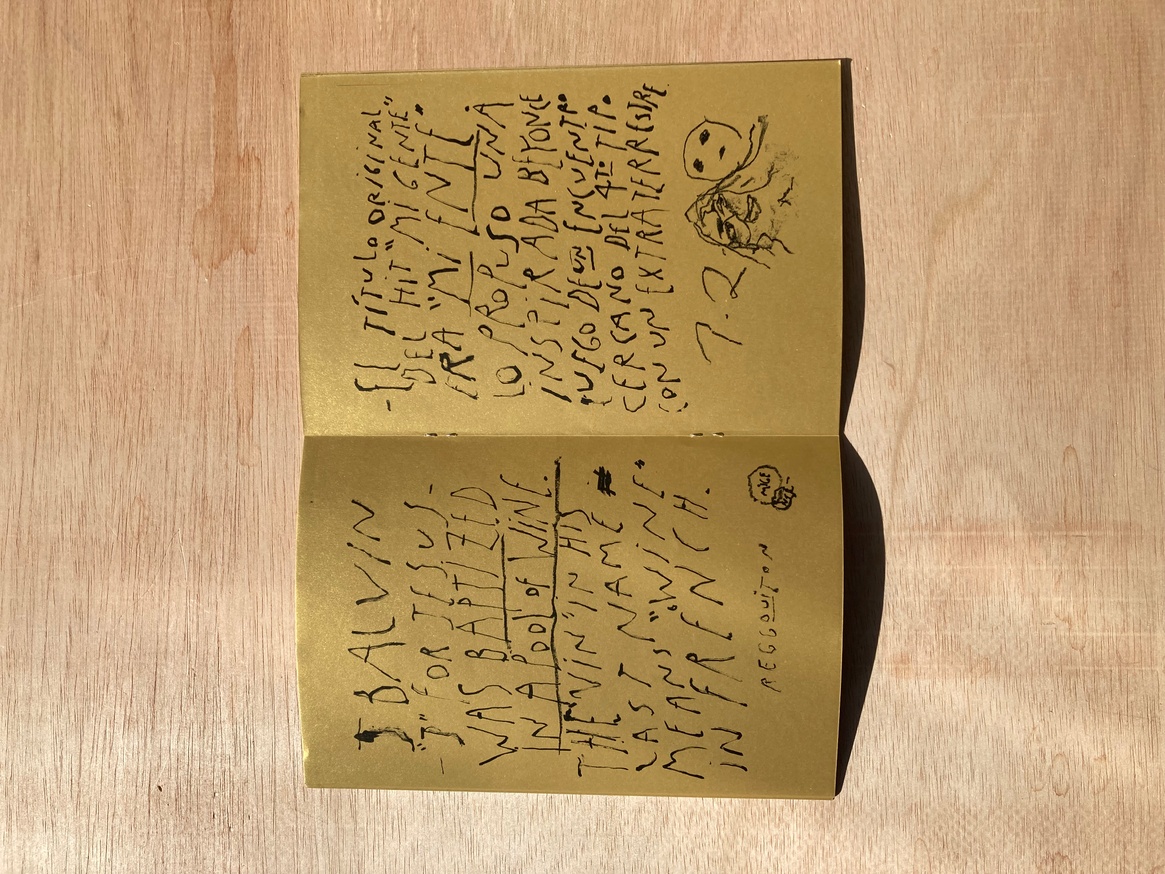 J BALVIN
- "J" FOR JESUS -
WAS BAPTIZED
IN A POOL OF WINE.
THE "VIN" IN HIS
LAST NAME
MEANS "WINE"
IN FRENCH.
REGGOUITON
- EL TÍTULO ORIGINAL
DEL HIT "MI GENTE"
ERA "MI ENTE".
LO PROPUSO UNA
INSPIRADA BEYONCE
LUEGO DE UN ENCUENTRO
CERCANO DEL 4TO TIPO
CON UN EXTRATERRESTRE.